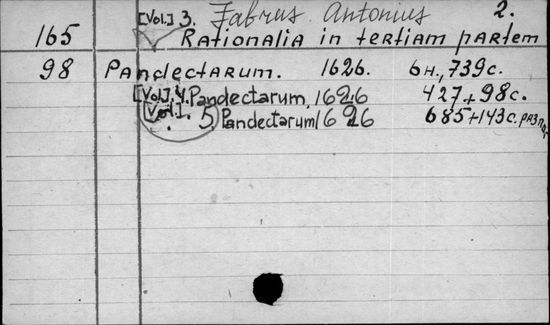 [Vol.] 3. Fabrus. Antonius 2.
165 Rationalia in tertiam partem
98 Pandectarum. 1626. 6н., 739с.
[Vol.] 4. Pandectarum, 1626 427+98с.
[Vol.]. 5 Pandectarum 1626 685+143с.